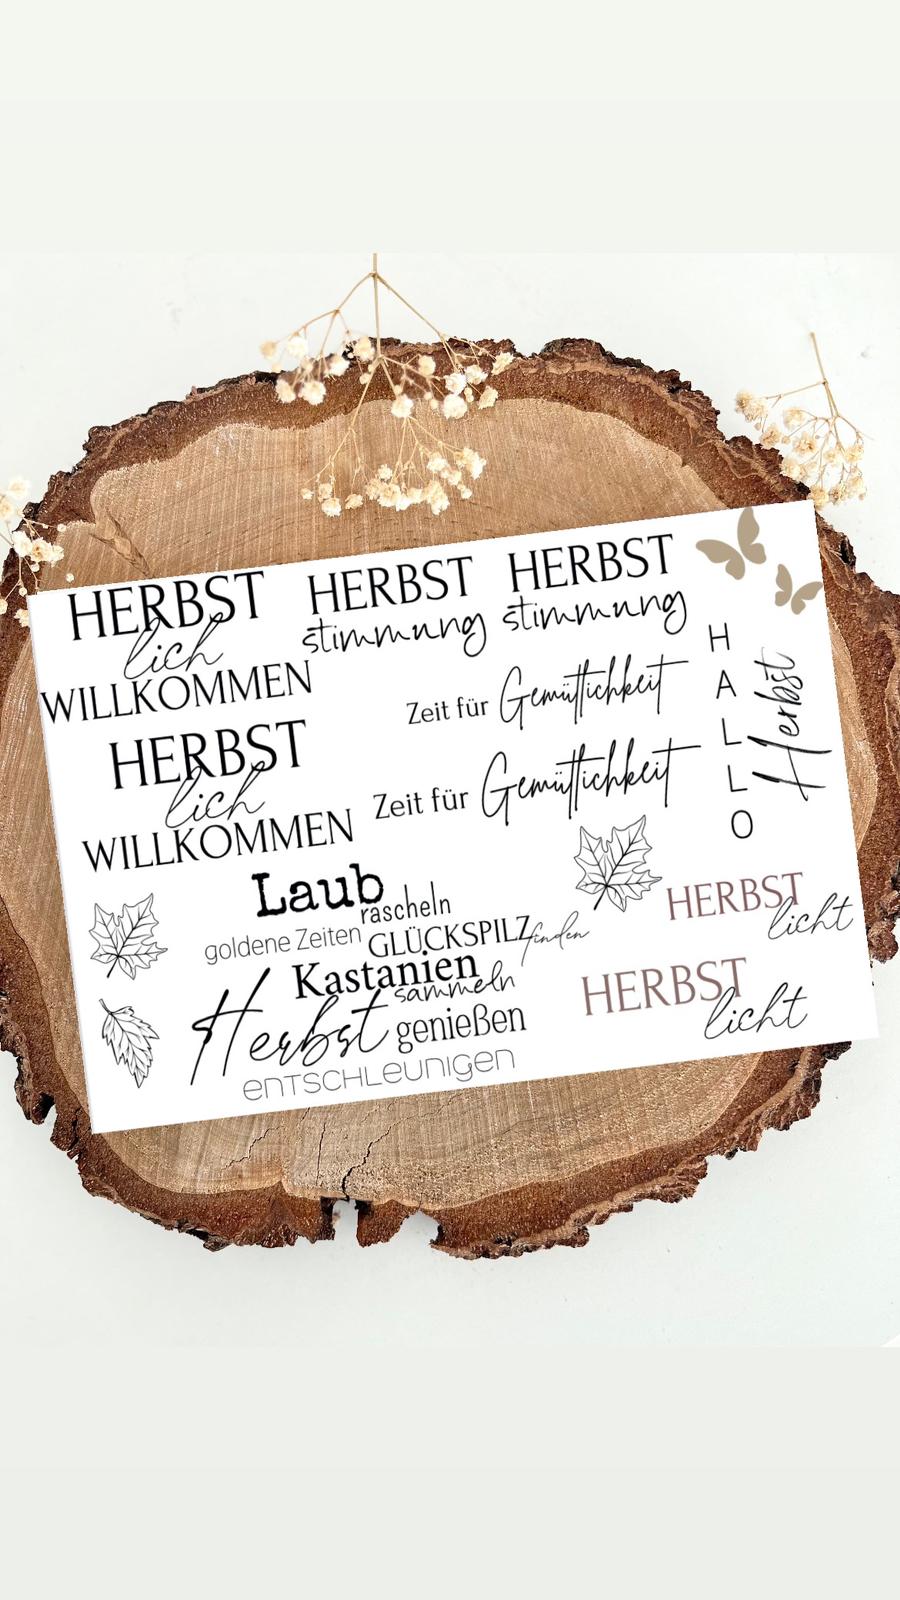 HERBST
lich
WILLKOMMEN
HERBST
stimmung
HERBST
stimmung
HERBST
lich
WILLKOMMEN
Zeit für Gemütlichkeit
Zeit für Gemütlichkeit
HALLO
Herbst
Laub
rascheln
goldene Zeiten
GLÜCKSPILZ
finden
Kastanien
sammeln
Herbst genießen
entschleunigen
HERBST
licht
HERBST
licht